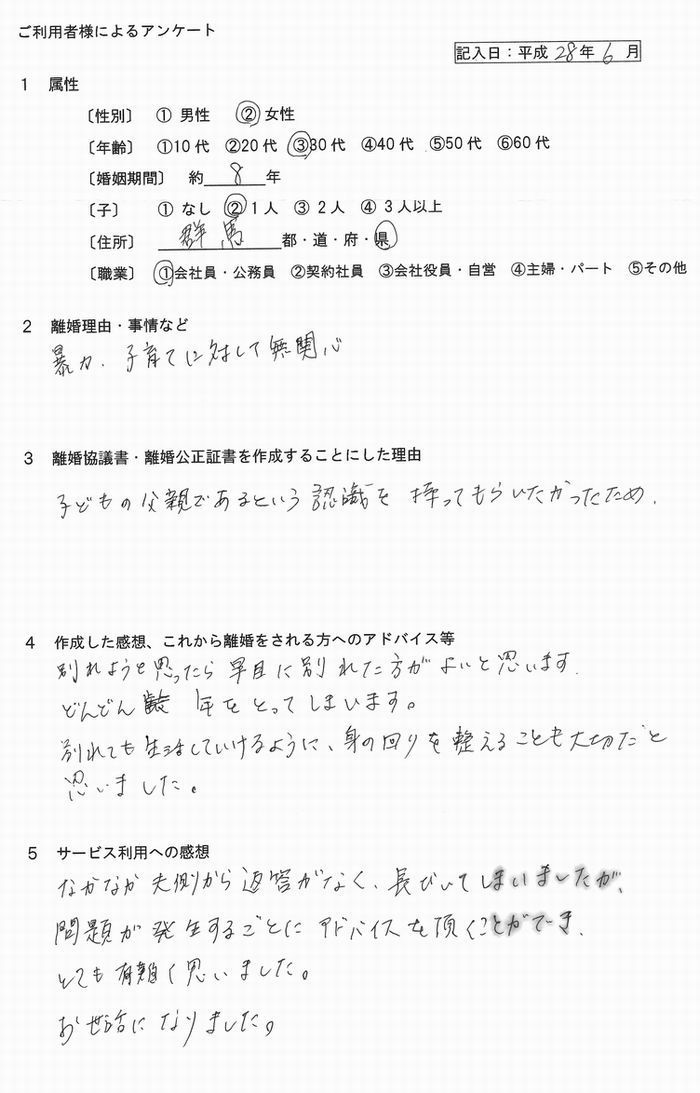 ご利用者様によるアンケート
記入日：平成 28年 6 月
1 属性
〔性別〕 ① 男性 ② 女性
〔年齢〕 ①10代 ②20代 ③30代 ④40代 ⑤50代 ⑥60代
〔婚姻期間〕 約 8 年
〔子〕 ① なし ② 1人 ③ 2人 ④ 3人以上
〔住所〕 群馬 都・道・府・県
〔職業〕 ①会社員・公務員 ②契約社員 ③会社役員・自営 ④主婦・パート ⑤その他
2 離婚理由・事情など
暴力、子育てに対して無関心
3 離婚協議書・離婚公正証書を作成することにした理由
子どもの父親であるという認識を持ってもらいたかったため.
4 作成した感想、これから離婚をされる方へのアドバイス等
別れようと思ったら早目に別れた方がよいと思います.
どんどん 年をとってしまいます。
別れても生活していけるように、身の回りを整えることも大切だと
思いました。
5 サービス利用への感想
なかなか夫側から返答がなく、長びいてしまいましたが、
問題が発生するごとにアドバイスを頂くことができ、
とても有難く思いました。
お世話になりました。